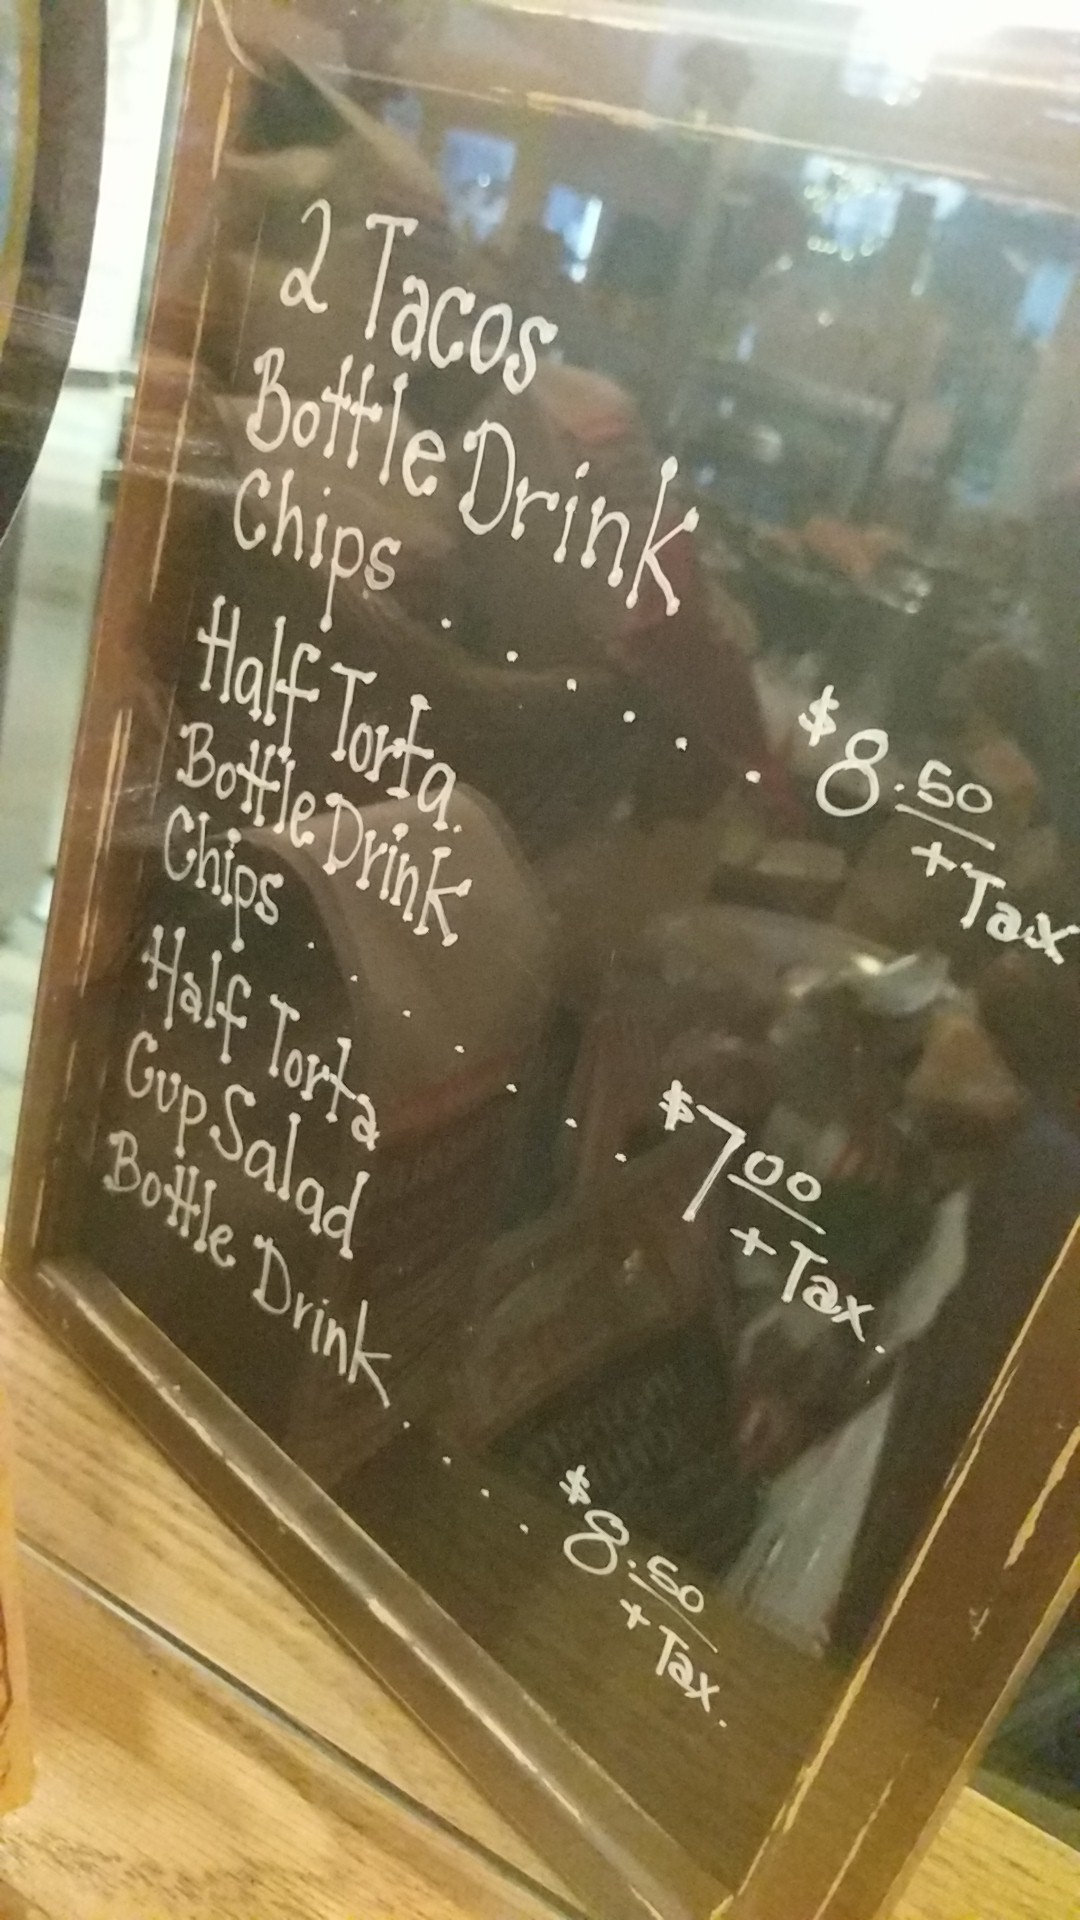 2 Tacos
Bottle Drink
Chips . . . . . . $8.50
+ Tax
Half Torta
Bottle Drink
Chips . . . . . . . $7 00
+ Tax.
Half Torta
Cup Salad
Bottle Drink . . . . $8.50
+ Tax.